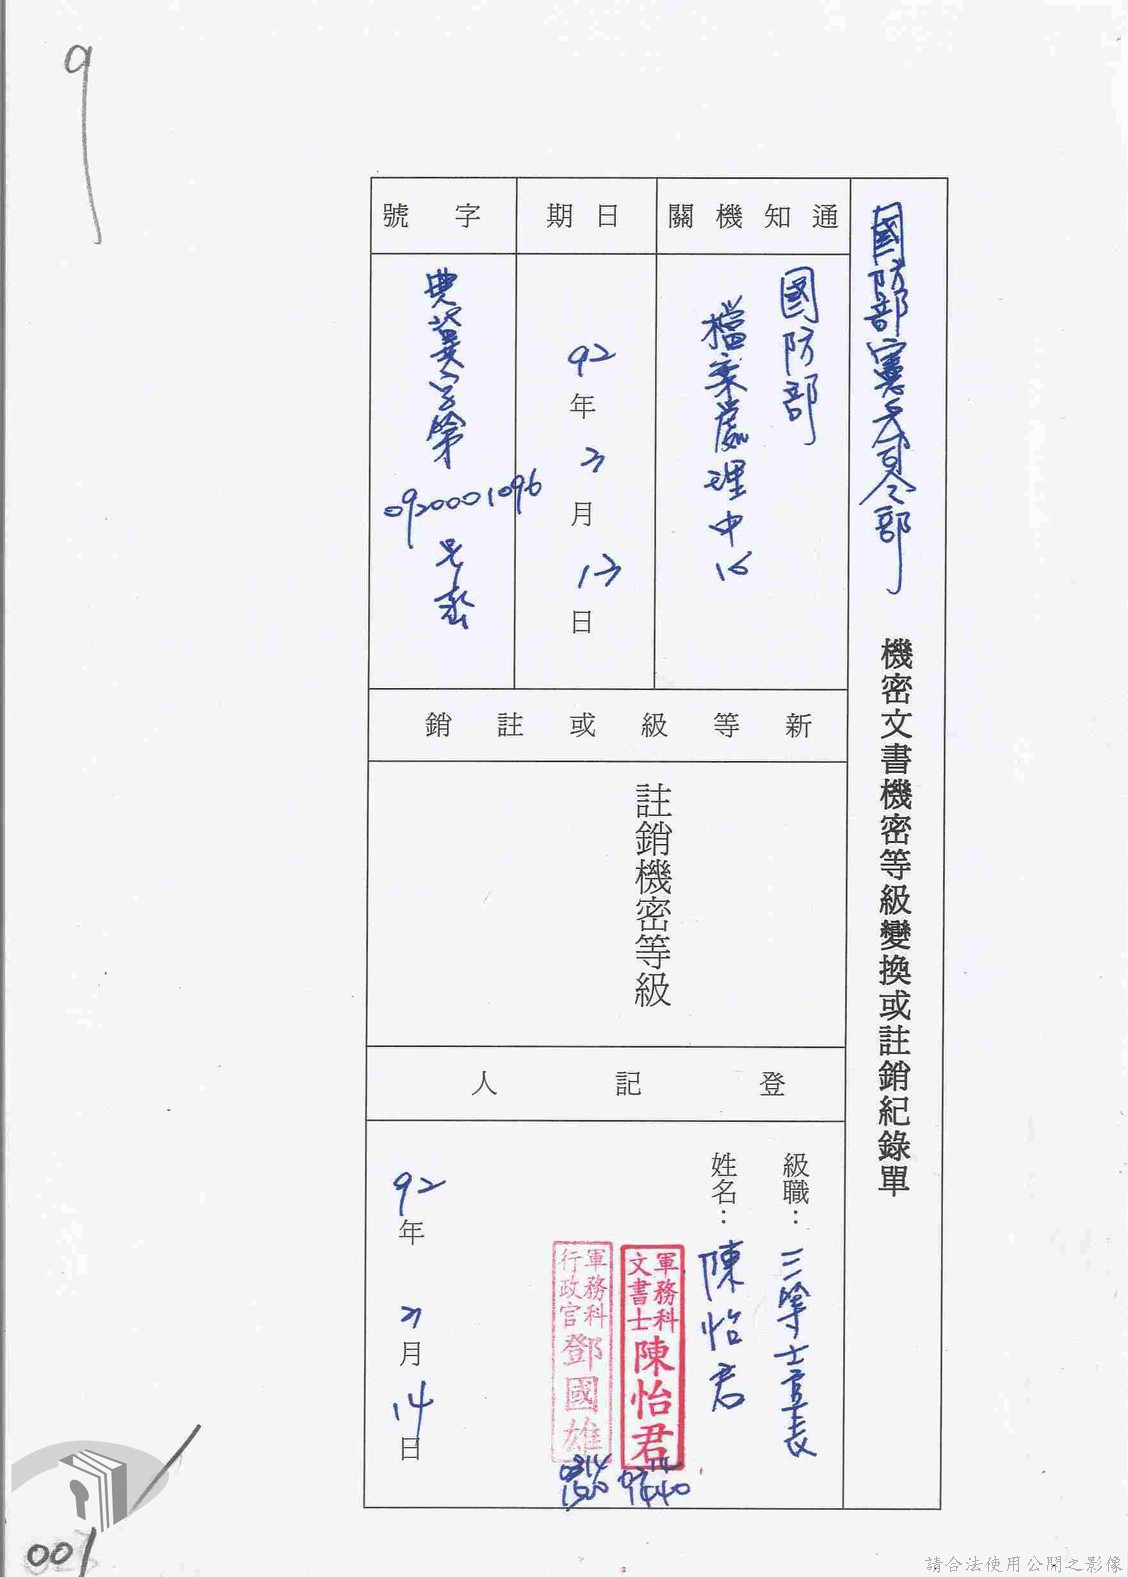 9
國防部憲兵司令部
機密文書機密等級變換或註銷紀錄單
通知機關
國防部
檔案處理中心
日期
92年3月13日
字號
典冀字第
0920001096
號
新等級或註銷
註銷機密等級
登記人
級職：三等士官長
姓名：陳怡君
軍務科
文書士
陳怡君
0314
1440
軍務科
行政官
鄧國雄
0314
1500
92年3月14日
001
請合法使用公開之影像